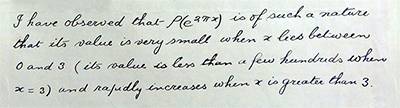 I have observed that ρ(e^{2πx}) is of such a nature
that its value is very small when x lies between
0 and 3 (its value is less than a few hundreds when
x = 3) and rapidly increases when x is greater than 3.